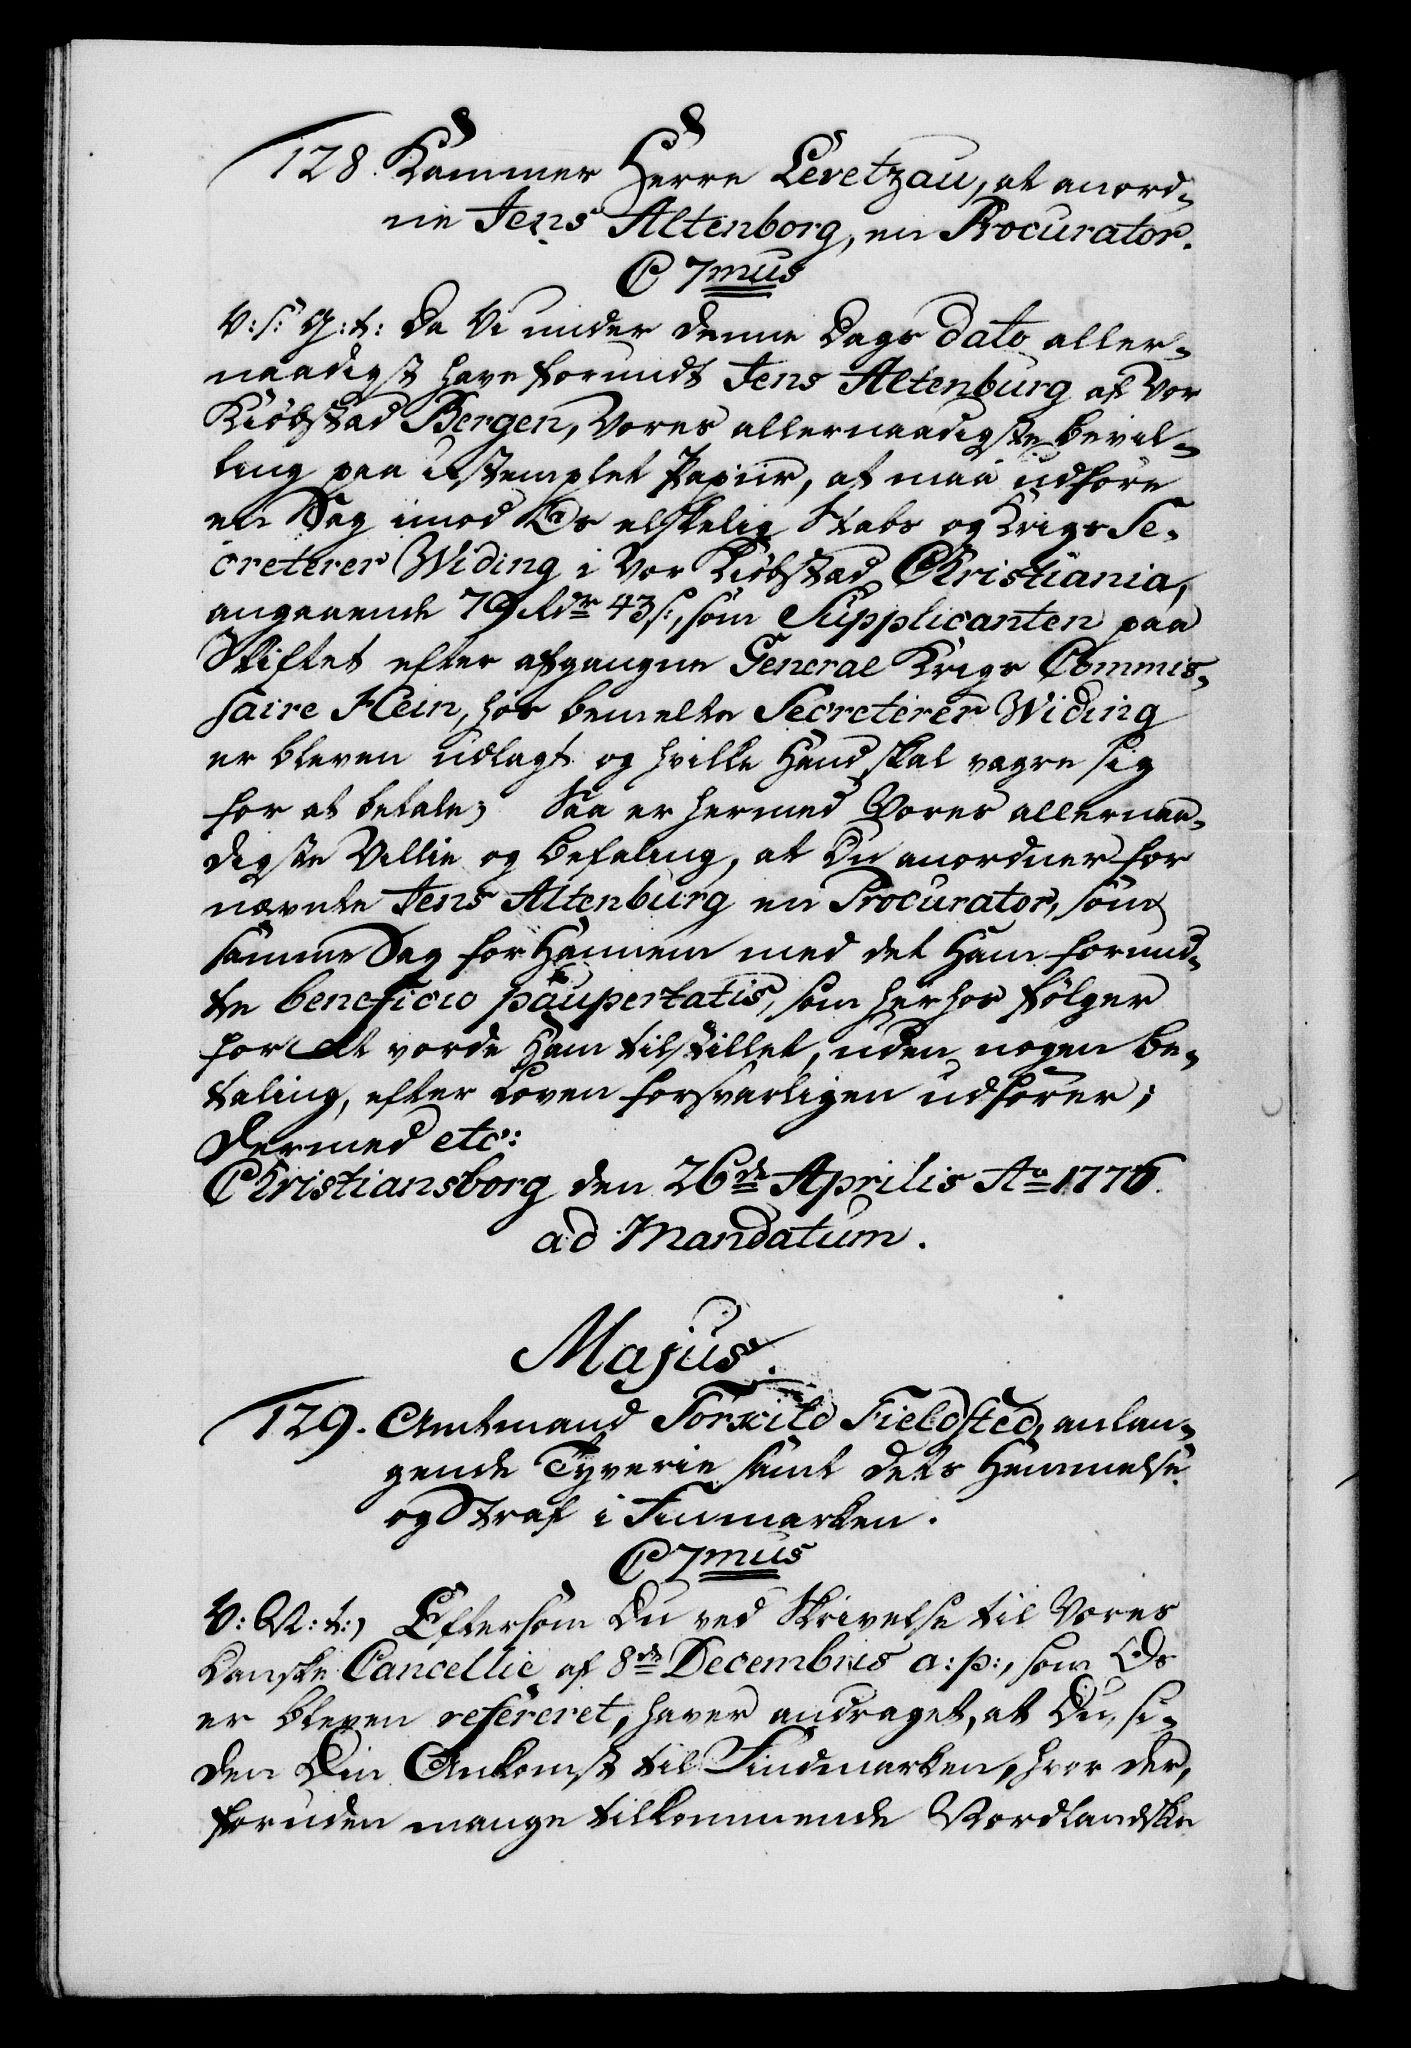 128. Kammer Herre Levetzau, at anord-
ne Jens Altenborg, en Procurator.
C 7mus
V: S: G: t: Da Vi under denne Dags dato aller-
naadigst have forundt Jens Altenburg af Vor
Kiöbstad Bergen, Vores allernaadigste bevil-
ling paa ustemplet Papiir, at maa udføre
en Sag imod Os elskelig Stabs og Krigs Se-
creterer Widing i Vor Kiöbstad Christiania,
angaaende 79 Rdr 43 s:, som Supplicanten paa
Skiftet efter afgangne General Krigs Commis-
saire Hein, hos bemelte Secreterer Widing
er bleven udlagt og hvilke Hand skal vægre sig
for at betale; Saa er hermed Vores allernaa-
digste Villie og befaling, at Du anordner for
nævnte Jens Altenburg en Procurator, som
samme Sag for Hannem med det Ham forund-
te beneficio paupertatis, som herhos følger
for at vorde Ham tilstillet, uden nogen be-
taling, efter Loven forsvarligen udfører;
Dermed etc:
Christiansborg den 26de Aprilis Ao 1776.
ad Mandatum.
Majus.
129. Amtmand Torkild Fieldsted, anlan-
gende Tyverie samt dets Hemmelse
og Straf i Finmarken.
C 7mus
V: G: t:, Eftersom Du ved Skrivelse til Vores
Danske Cancellie af 8de Decembris a: p:, som Os
er bleven refereret, haver andraget, at Du, si-
den Din Ankomst til Findmarken, hvor der,
foruden mange tilkommende Nordlandske